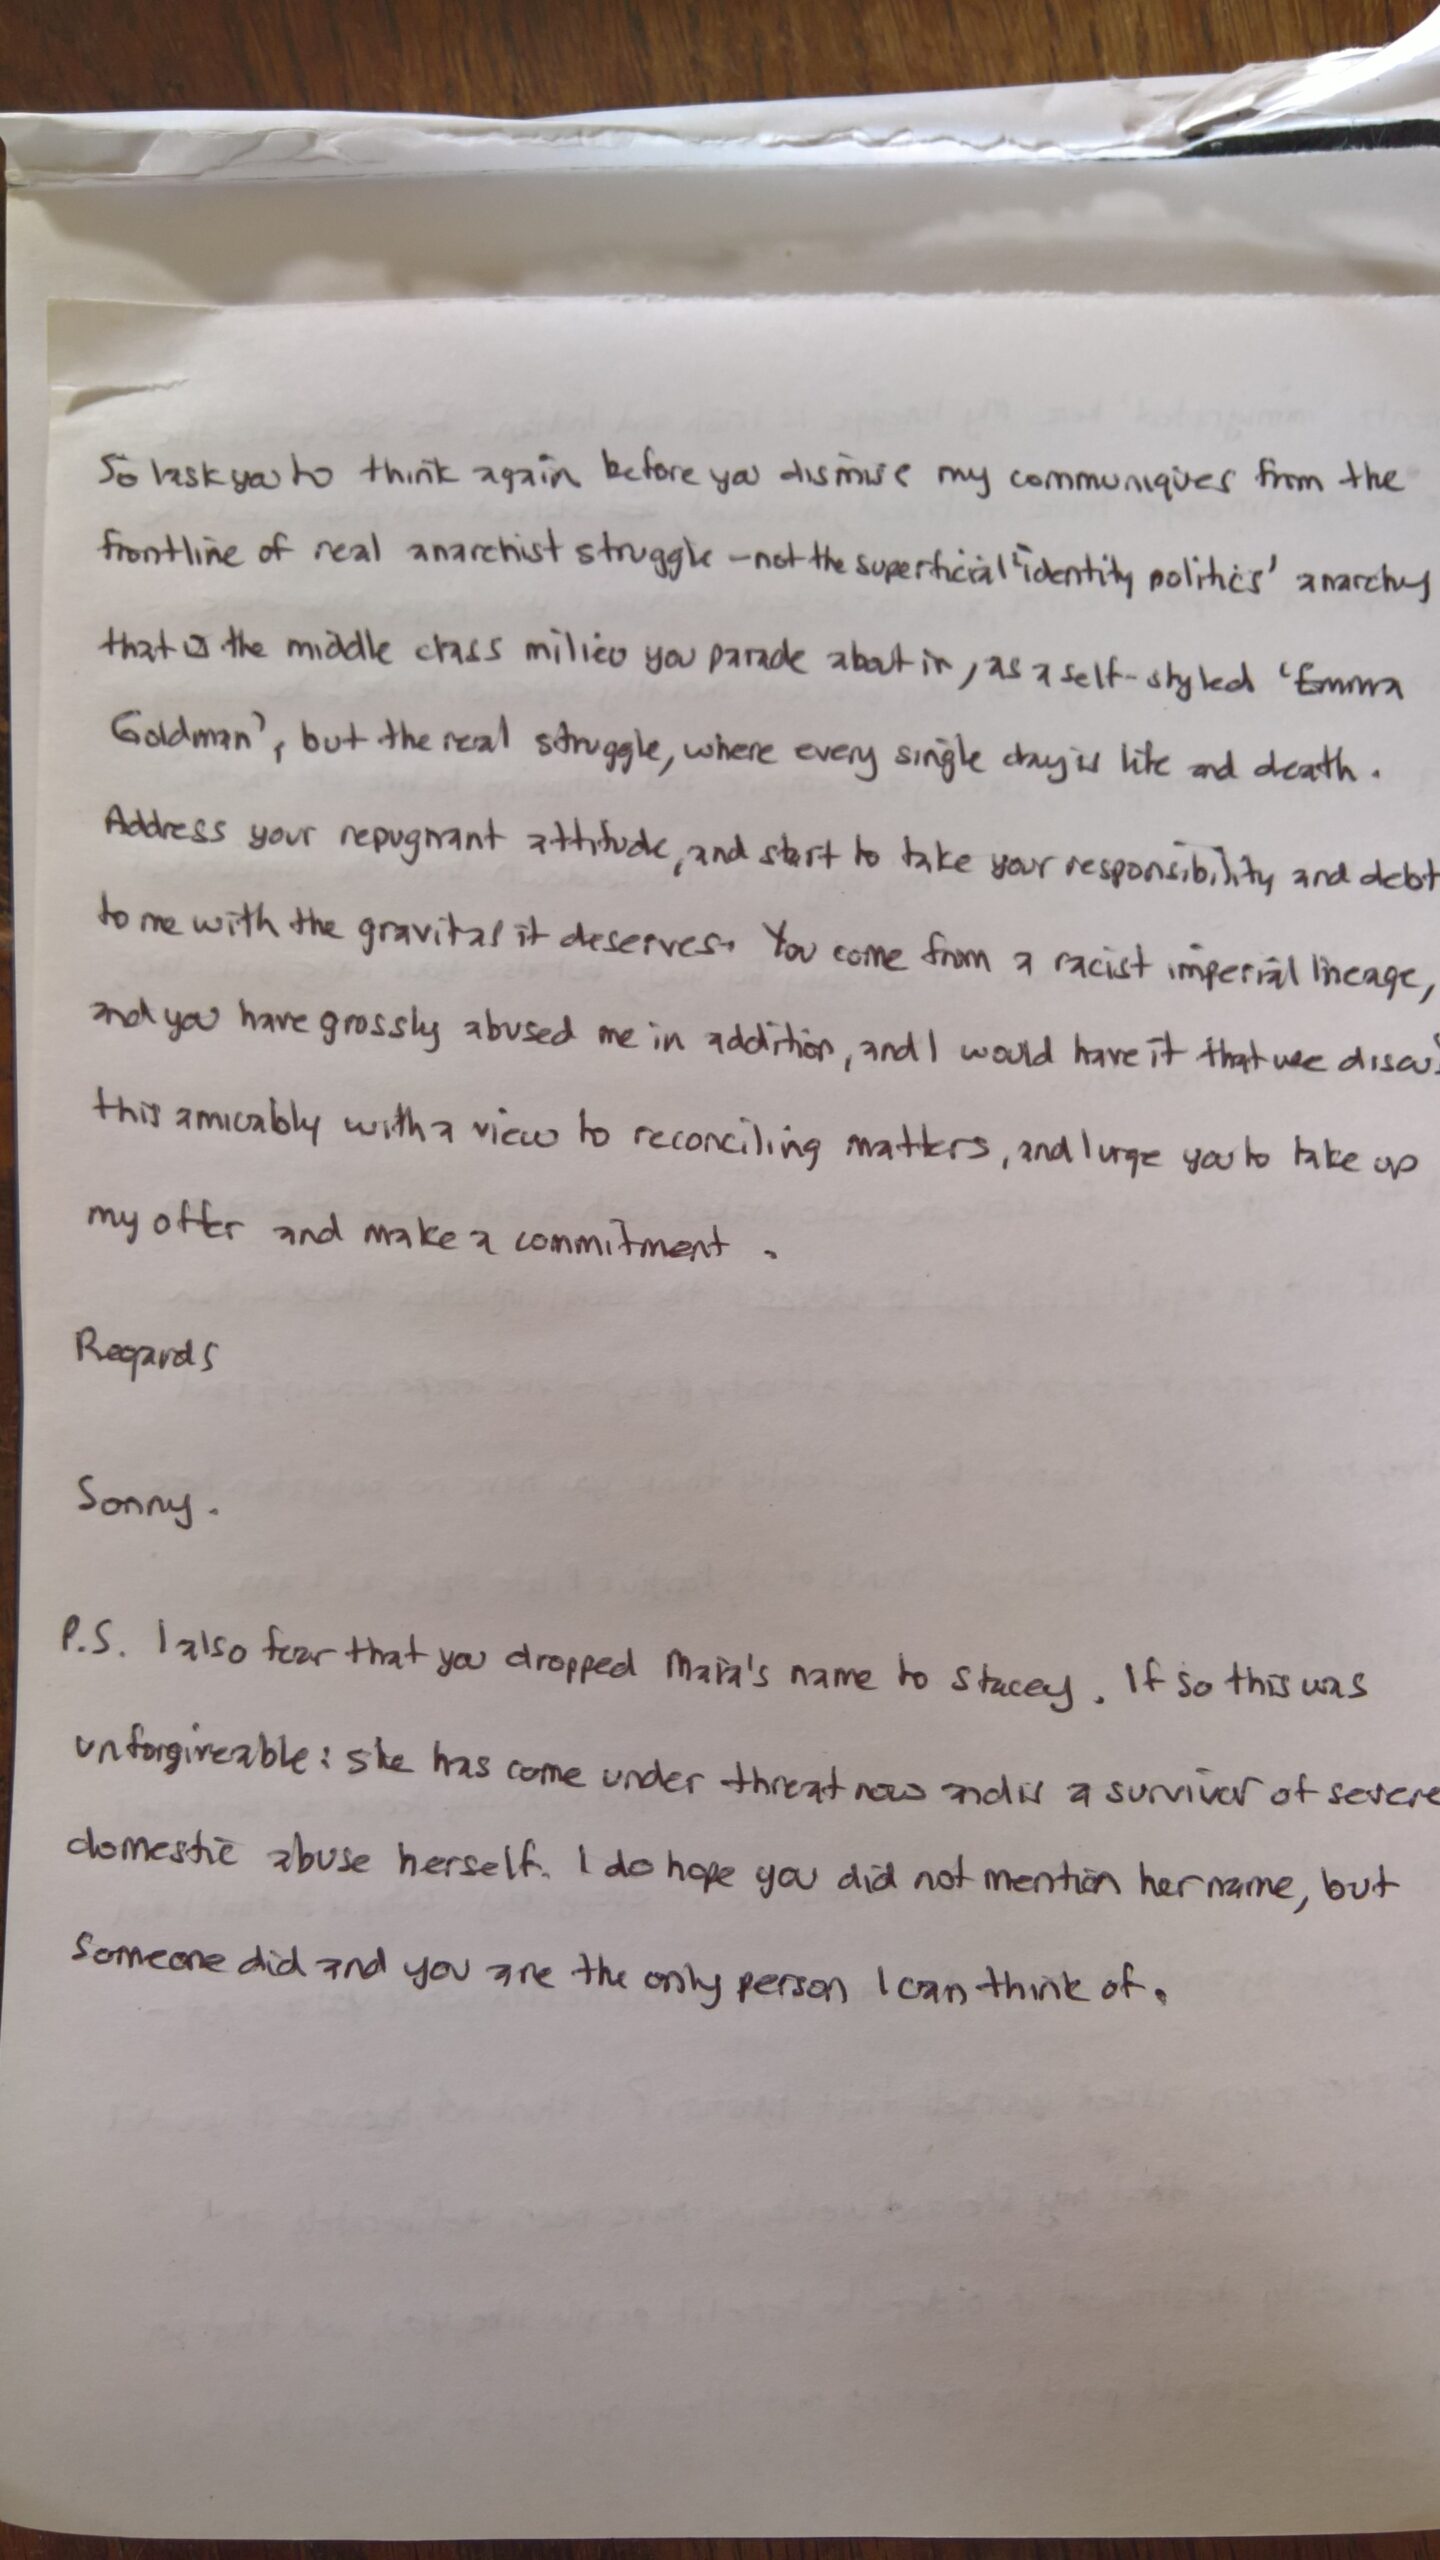 So I ask you to think again before you dismise my communiques from the
frontline of real anarchist struggle – not the superficial 'identity politics' anarchy
that is the middle class milieu you parade about in, as a self-styled 'Emma
Goldman', but the real struggle, where every single day is life and death.
Address your repugnant attitude, and start to take your responsibility and debt
to me with the gravitas it deserves. You come from a racist imperial lineage,
and you have grossly abused me in addition, and I would have it that we
this amicably with a view to reconciling matters, and I urge you to take up
my offer and make a commitment.
Regards
Sonny.
P.S. I also fear that you dropped Maia's name to Stacey. If so this was
unforgiveable: she has come under threat now and is a survivor of severe
domestic abuse herself. I do hope you did not mention her name, but
someone did and you are the only person I can think of.